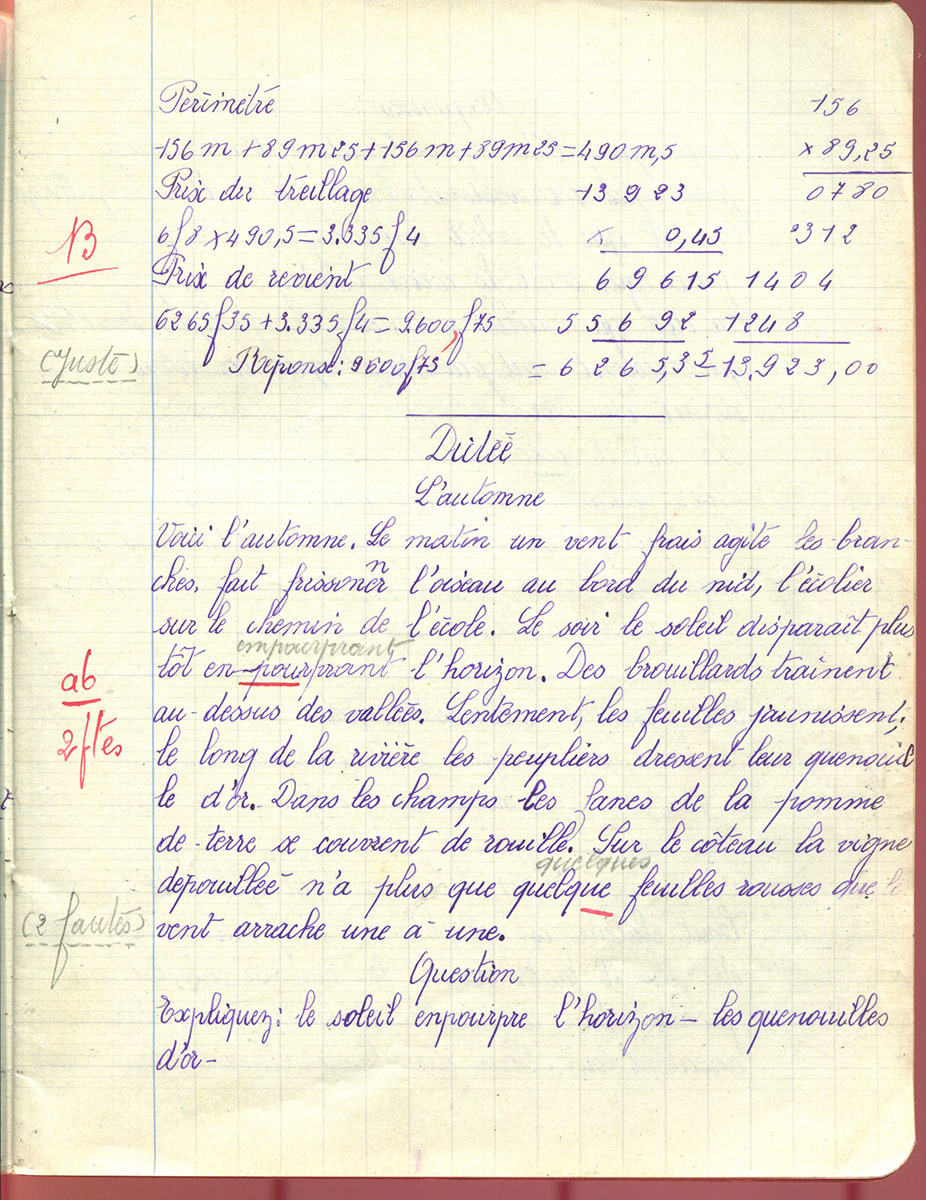 Périmètre
156
156 m + 89 m 25 + 156 m + 89 m 25 = 490 m,5
× 89,25
Prix du treillage
13 923
0780
B
6 f 8 × 490,5 = 3.335 f 4
× 0,45
312
Prix de revient
69615
1404
6265 f 35 + 3.335 f 4 = 9.600, f 75
55692
1248
(Juste)
Réponse: 9600 f 75
= 6265,35
= 13.923,00
Dictée
L'automne
Voici l'automne. Le matin un vent frais agite les bran-
ches, fait frissonner l'oiseau au bord du nid, l'écolier
sur le chemin de l'école. Le soir le soleil disparaît plus
empourprant
tôt en pourprant l'horizon. Des brouillards traînent
ab
au-dessus des vallées. Lentement, les feuilles jaunissent;
2 ftes
le long de la rivière les peupliers dressent leur quenouil
le d'or. Dans les champs les fanes de la pomme
de-terre se couvrent de rouille. Sur le côteau la vigne
quelques
dépouillée n'a plus que quelque feuilles rousses que le
(2 fautes)
vent arrache une à une.
Question
Expliquez: le soleil enpourpre l'horizon - les quenouilles
d'or -